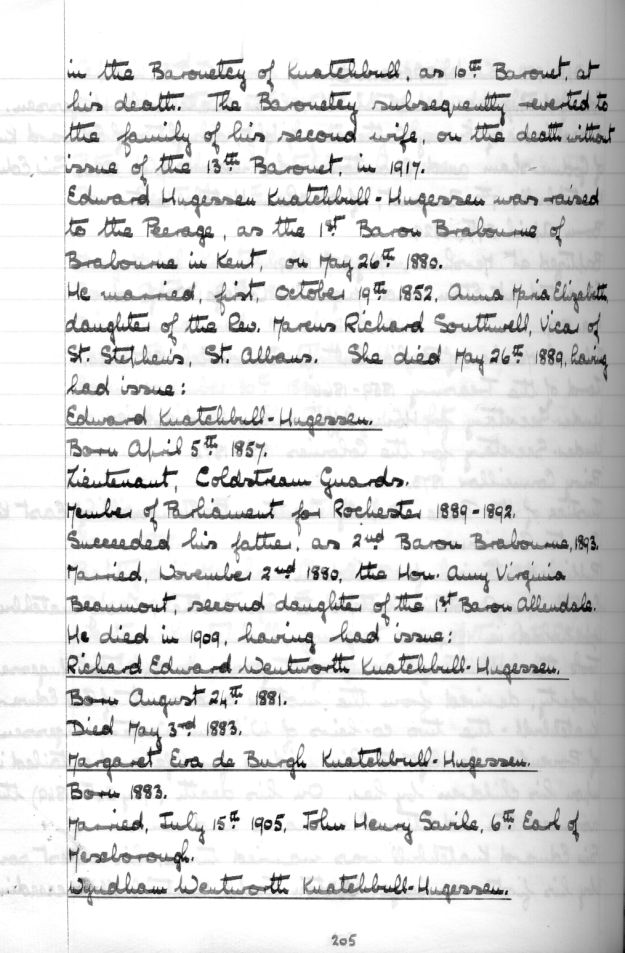 in the Baronetcy of Knatchbull, as 10th Baronet, at
his death. The Baronetcy subsequently reverted to
the family of his second wife, on the death without
issue of the 13th Baronet, in 1917.
Edward Hugessen Knatchbull-Hugessen was raised
to the Peerage, as the 1st Baron Brabourne of
Brabourne in Kent, on May 26th 1880.
He married, first, October 19th 1852, Anna Maria Elizabeth,
daughter of the Rev. Marcus Richard Southwell, Vicar of
St. Stephens, St. Albans. She died May 26th 1889, having
had issue:
Edward Knatchbull-Hugessen.
Born April 5th 1857.
Lieutenant, Coldstream Guards.
Member of Parliament for Rochester 1889-1892.
Succeeded his father, as 2nd Baron Brabourne, 1893.
Married, November 2nd 1880, the Hon. Amy Virginia
Beaumont, second daughter of the 1st Baron Allendale.
He died in 1909, having had issue:
Richard Edward Wentworth Knatchbull-Hugessen.
Born August 24th 1881.
Died May 3rd 1883.
Margaret Eva de Burgh Knatchbull-Hugessen.
Born 1883.
Married, July 15th 1905, John Henry Savile, 6th Earl of
Mexborough.
Wyndham Wentworth Knatchbull-Hugessen.
205